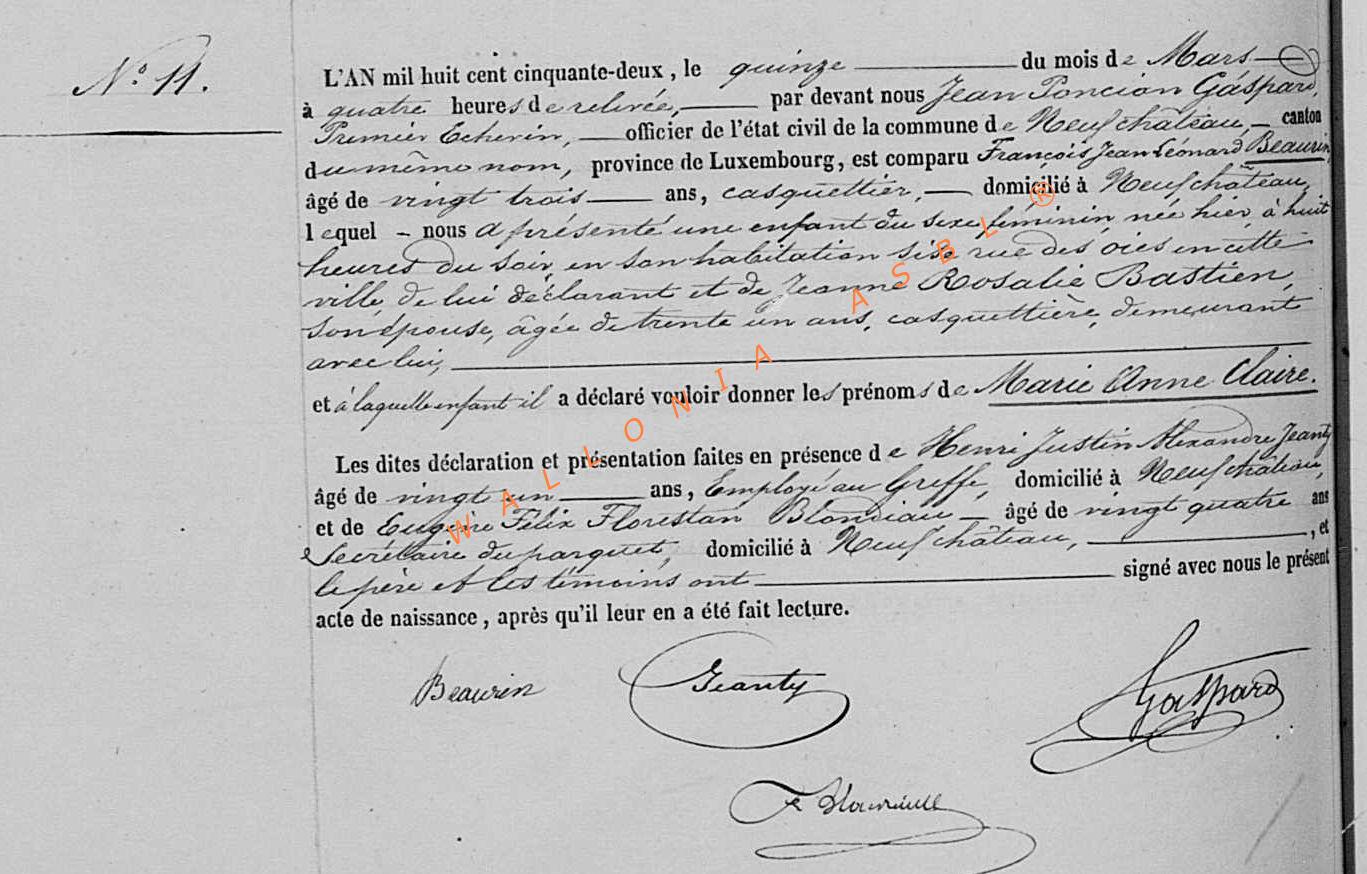 N.° 11.
L'AN mil huit cent cinquante-deux, le quinze du mois de Mars
à quatre heures de relevée, par devant nous Jean Poncian Gaspard,
Premier Echevin, officier de l'état civil de la commune de Neufchâteau, canton
du même nom, province de Luxembourg, est comparu François Jean Léonard Beaurin,
âgé de vingt trois ans, casquettier, domicilié à Neufchâteau,
lequel nous a présenté une enfant du sexe féminin, née hier, à huit
heures du soir, en son habitation sise rue des oies en cette
ville, de lui déclarant et de Jeanne Rosalie Bastien,
son épouse, âgée de trente un ans, casquettière, demeurant
avec lui,
et à laquelle enfant il a déclaré vouloir donner les prénoms de Marie Anne Claire.
Les dites déclaration et présentation faites en présence de Henri Justin Alexandre Jeanty
âgé de vingt un ans, Employé au Greffe, domicilié à Neufchâteau,
et de Eugène Félix Florestan Blondiau âgé de vingt quatre ans
Secrétaire du parquet, domicilié à Neufchâteau, , et
le père et les témoins ont signé avec nous le présent
acte de naissance, après qu'il leur en a été fait lecture.
Beaurin Jeanty Gaspard
WALLONIA ASBL ®